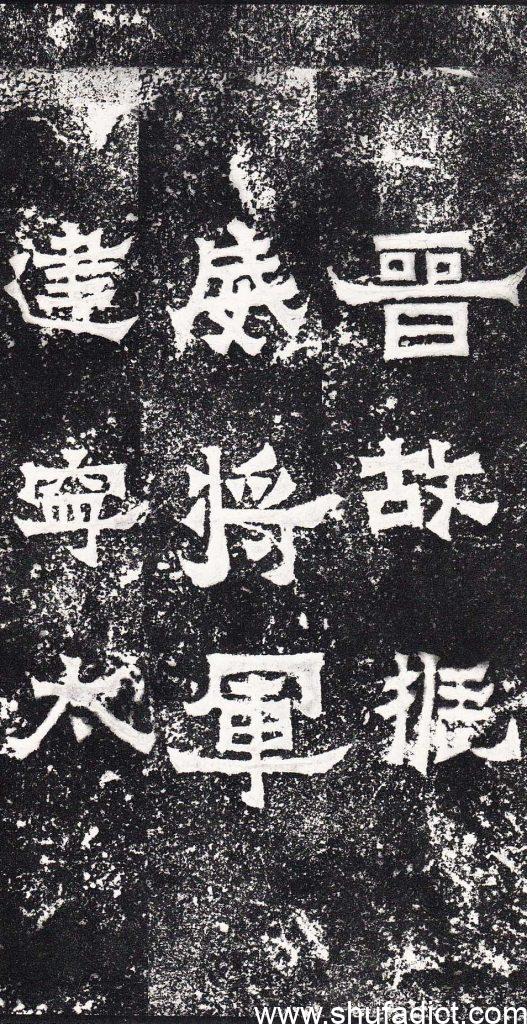 晉故振
威將軍
建寧太
www.shufadict.com